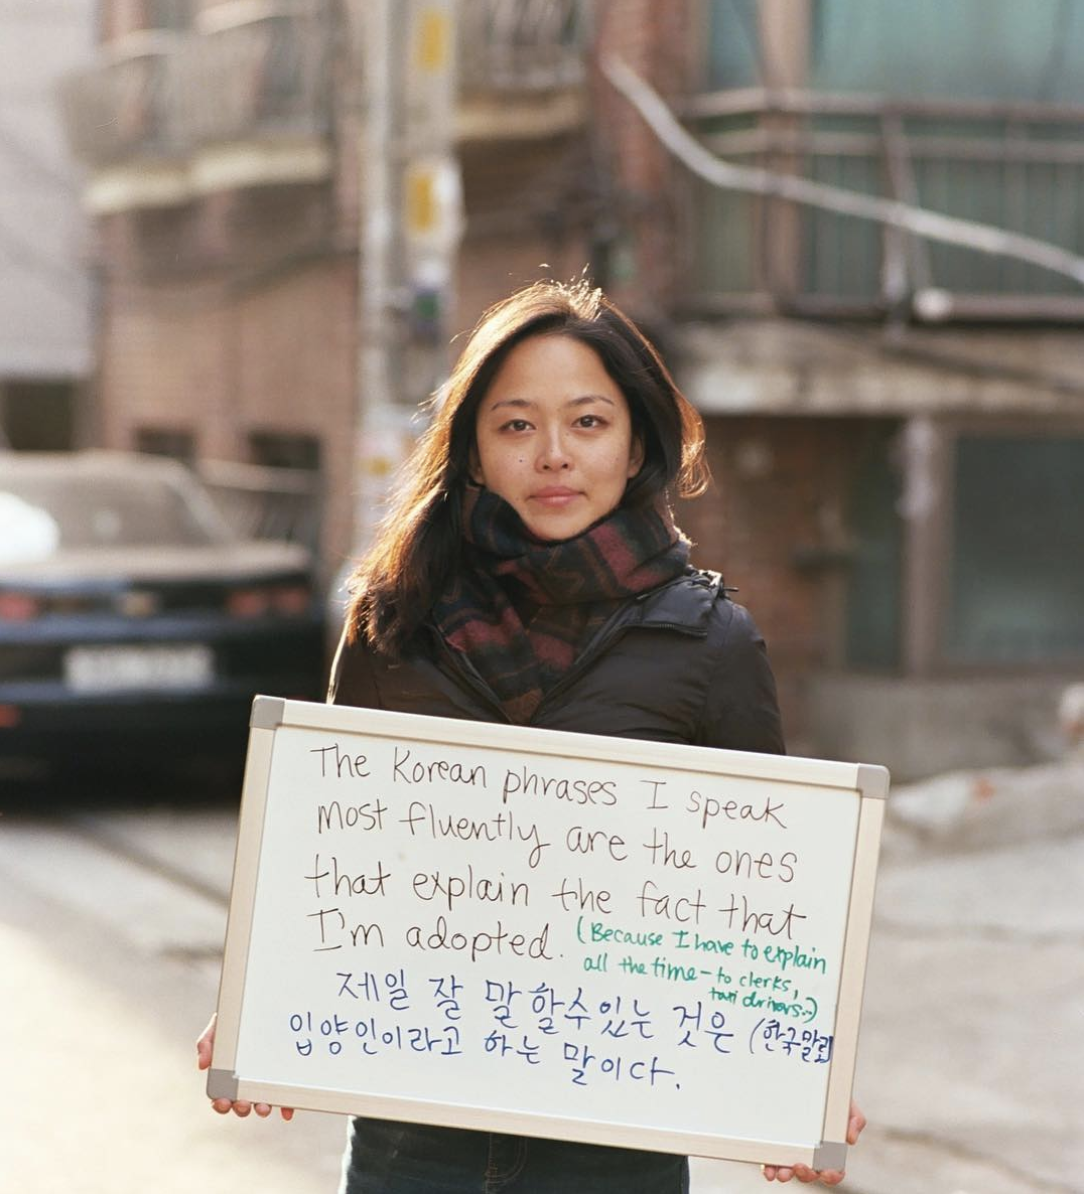 The Korean phrases I speak
most fluently are the ones
that explain the fact that
I'm adopted.
(Because I have to explain
all the time - to clerks,
taxi drivers..)
제일 잘 말할수있는 것은 (한국말로)
입양인이라고 하는 말이다.